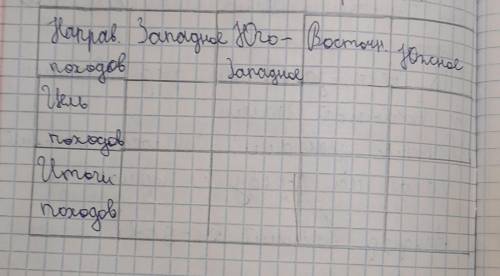 Направ. Западное Юго- Восточн. Южное
походов Западное
Цель
походов
Итоги
походов